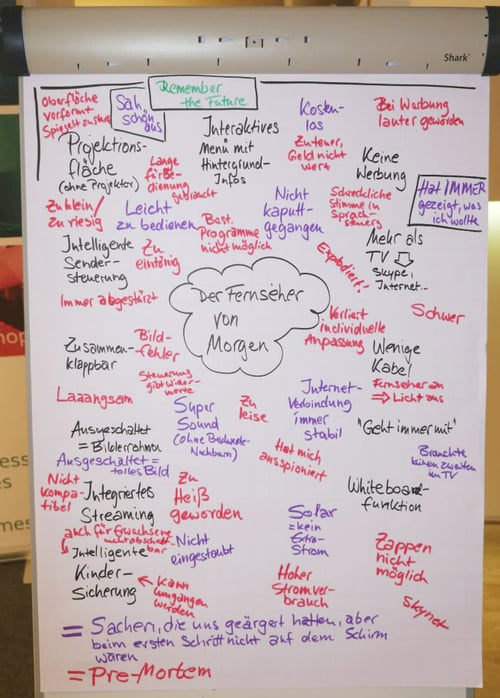 Shark
Remember
the Future
Oberfläche
verformt
Sah
schön
aus
Projektions-
fläche
(ohne Projektor)
Interaktives
Menü mit
Hintergrund-
Infos
Kosten-
los
Zu teuer,
Geld nicht
wert
Bei Werbung
lauter geworden
Keine
Werbung
Hat IMMER
gezeigt, was
ich wollte
Lange
für Be-
dienung
gebraucht
Zu klein/
zu riesig
Leicht
zu bedienen
Best.
Programme
nicht möglich
Nicht
kaputt-
gegangen
Schreckliche
Stimme in
Sprach-
steuerg
Mehr als
TV
Skype,
Internet...
Intelligente
Sender-
steuerung
Zu
eintönig
Explodiert!
Immer abgestürzt
Der Fernseher
von
Morgen
Verliert
individuelle
Anpassung
Schwer
Zusammen-
klappbar
Bild-
fehler
Steuerung
gibt Wider-
worte
Wenige
Kabel
Fernseher an
⇒ Licht aus
Laaangsam
Super
Sound
(ohne
Nachbarn)
Zu
leise
Internet-
Verbindung
immer
stabil
"Geht immer mit"
Ausgeschaltet
= Bilderrahmen
Ausgeschaltet =
tolles Bild
Hat mich
ausspioniert
Brauchte
keinen zweiten
TV
Nicht
kompa-
tibel
Integriertes
Streaming
Zu
Heiß
geworden
Whiteboard-
funktion
auch für Erwachsene
Intelligente
Kinder-
Sicherung
← Kann
umgangen
werden
Nicht
eingestaubt
Solar
= kein
Extra-
Strom
Zappen
nicht
möglich
Hoher
Stromver-
brauch
Skynet
= Sachen, die uns geärgert hatten, aber
beim ersten Schritt nicht auf dem Schirm
waren
= Pre-Mortem